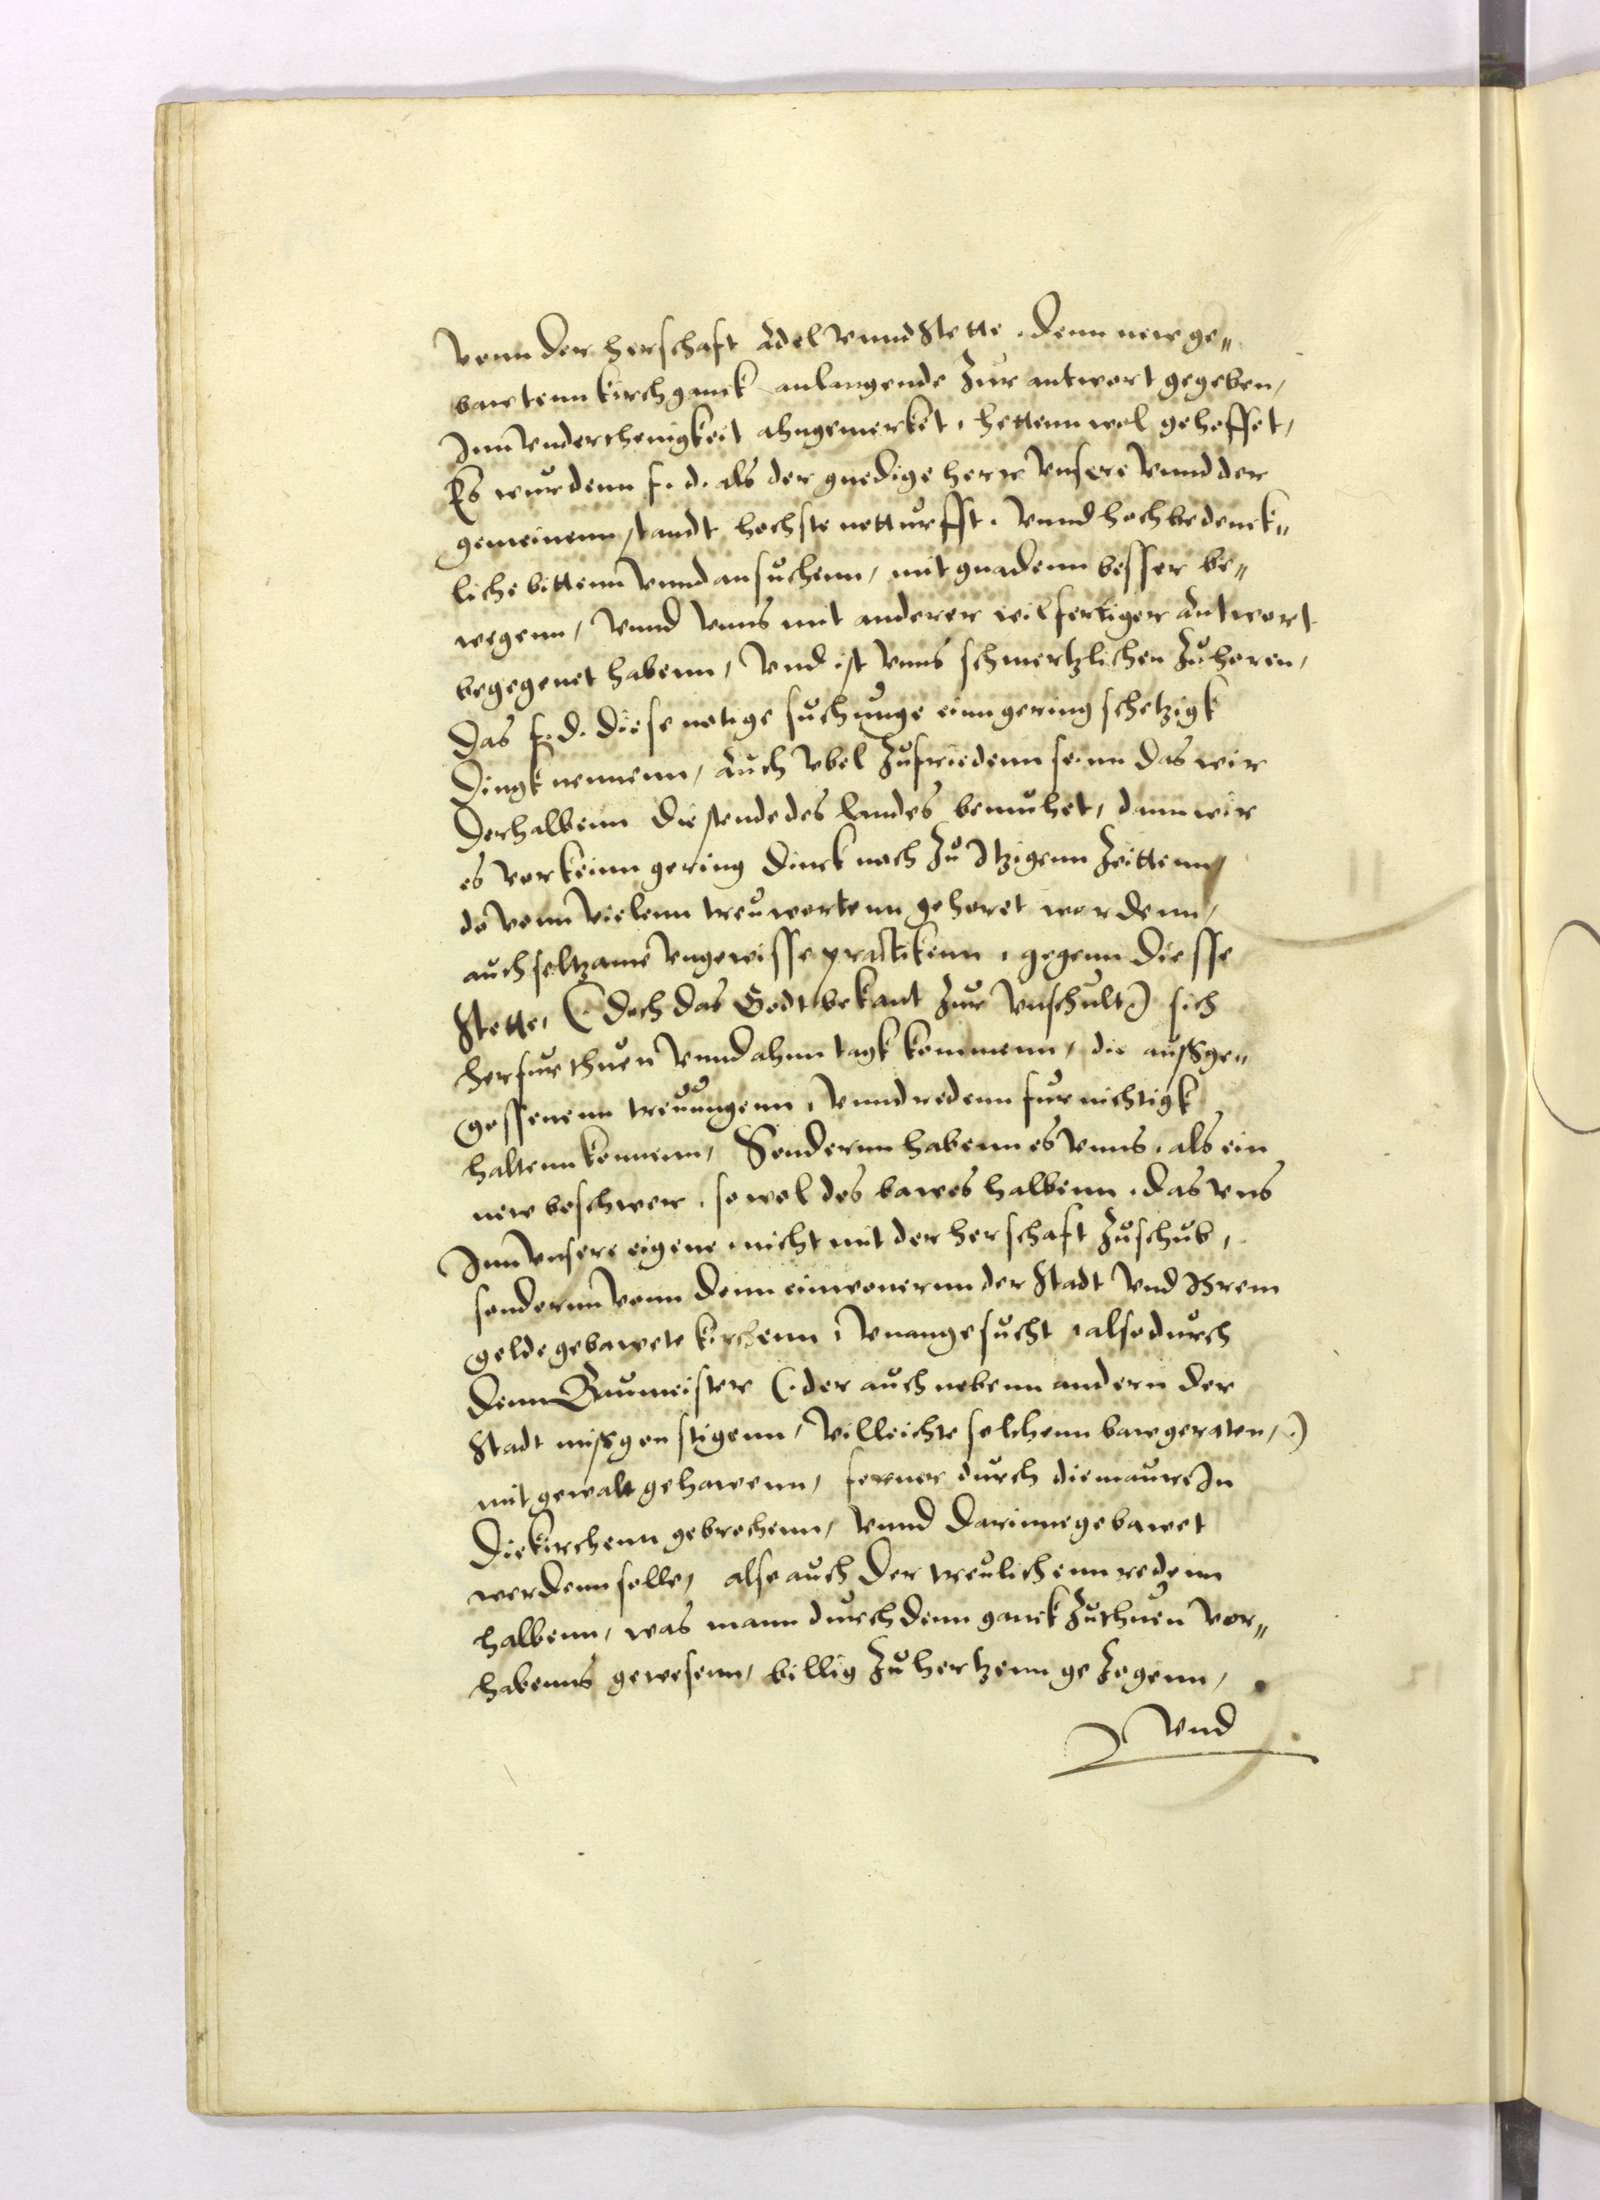 vonn der herschaft Adel vnnd Stette. denn new ge„
bawtenn kirchganck anlangende Zur antwort gegeben,
Inn vnderthenigkeit ahngemerket, hettenn wol gehoffet,
Es wurdenn f. d. als der gnedige herr vnsere vnnd der
gemeinenn standt hochste notturfft. vnnd hochbedenck„
liche bittenn vnnd ansuchenn, mit gnadenn besser be„
wegenn, vnnd vnns mit anderer wilfertiger Antwort
begegenet habenn, vnd ist vnns schmertzlichen Zu horen,
Das f. d. diese notige suchunge einn gering schetzigk
Dingk nennenn, Auch vbel Zufriedenn seinn das wir
Derhalbenn die stende des landes bemuhet, dann wir
es vor keinn gering dinck noch Zu Itzigenn Zeittenn,
do vonn vielenn treuwortenn gehoret wordenn,
auch seltzame vngewisse practikenn, gegenn diesse
Stette, (doch das Godt bekant Zur vnschult) sich
herfur thuen vnnd ahnn tagk kommenn, die außge„
gossenenn treuungenn, vnnd redenn fur nichtigk
haltenn konnenn, Sondernn habenn es vnns, als ein
new beschwer, so wol des bawes halbenn, das vns
Inn vnsere eigene, nicht mit der herschaft Zuschub,
sondernn vonn denn einwonernn der Stadt vnd Ihrem
gelde gebawete kirchenn, vnangesucht, also durch
denn Baumeister (der auch nebenn andern der
Stadt mißgonstigenn, villeichte solchenn baw geraten,)
mit gewalt gehawenn, ferner durch die maure In
Die kirchenn gebrochenn, vnnd darinne gebawet
werdenn solle, also auch der treulichenn redenn
halbenn, was mann durch denn ganck Zuthuen vor„
habenns gewesenn, billig Zu hertzenn geZogenn,
Vnd